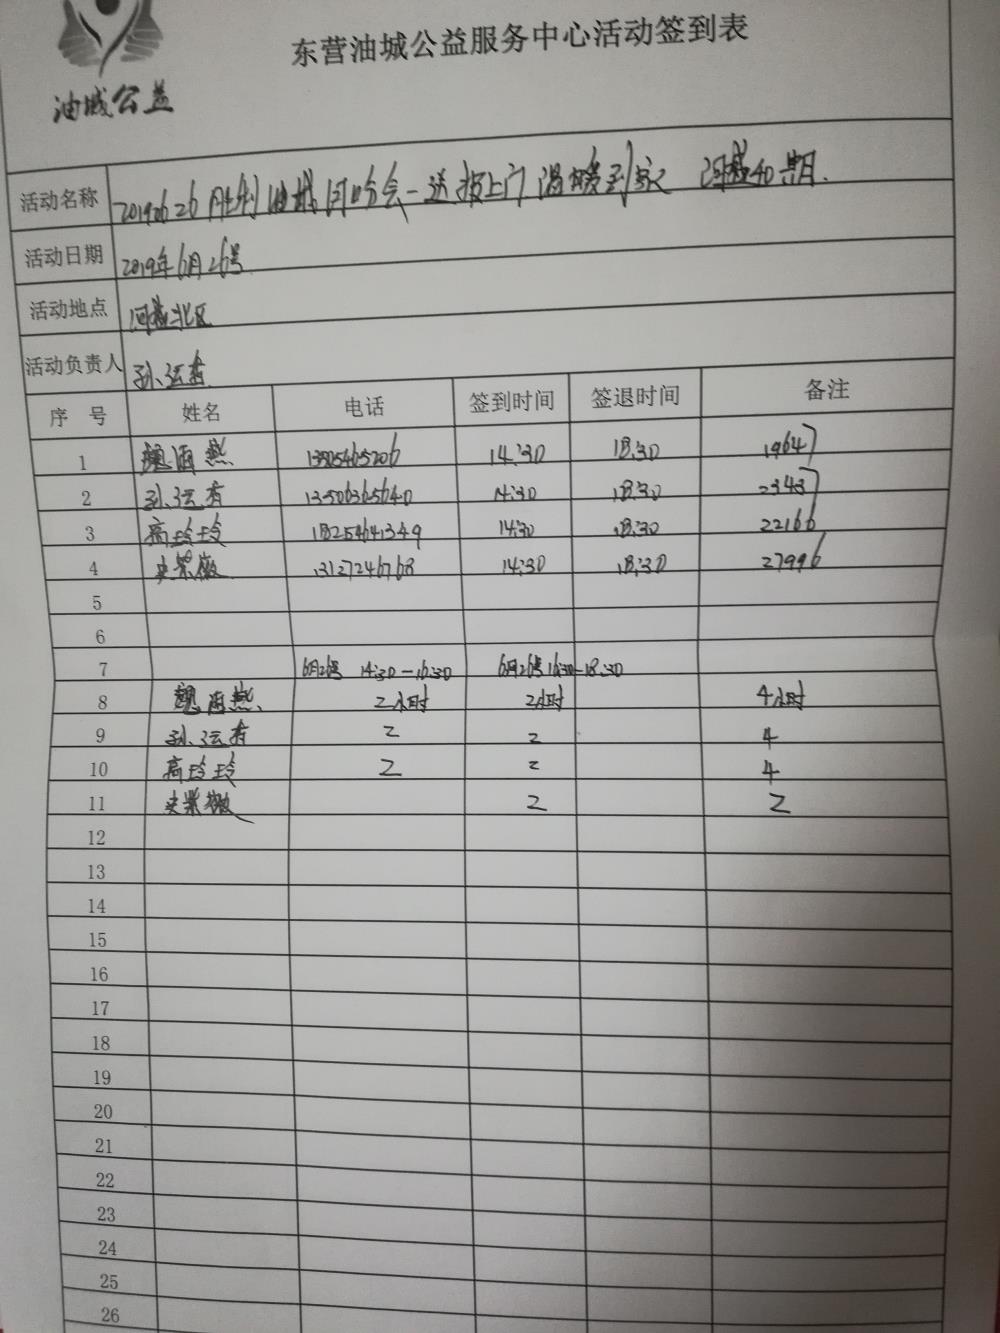 东营油城公益服务中心活动签到表
油城公益
活动名称 20190626胜利油城 分会-送报上门温暖到家 河盛40期.
活动日期 2019年6月26号
活动地点 河盛北区
活动负责人 孙运春
序 号 姓名 电话 签到时间 签退时间 备注
1 魏海燕 13505465206 14:30 18:30 19647
2 孙运春 13506365640 14:30 18:30 23437
3 高玲玲 18254641349 14:30 18:30 22166
4 史紫薇 13127246768 14:30 18:30 27996
5
6
7 6月26号 14:30-16:30 6月26号16:30-18:30
8 魏海燕. 2小时 2小时 4小时
9 孙运春 2 2 4
10 高玲玲 2 2 4
11 史紫薇 2 2
12
13
14
15
16
17
18
19
20
21
22
23
24
25
26